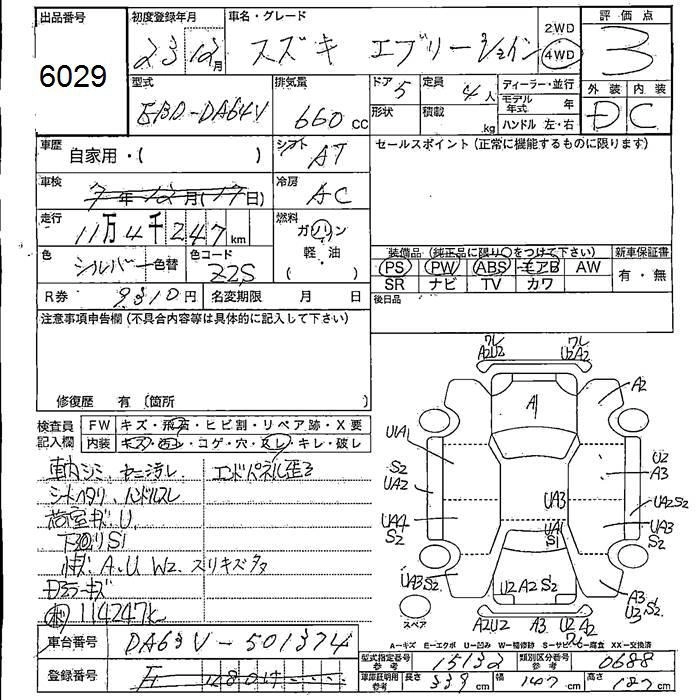 出品番号
6029
初度登録年月
23 12月
車名・グレード
スズキ エブリージョイン
2WD
4WD
評価点
3
外装 内装
D C
型式
EBD-DA64V
排気量
660cc
ドア 5
形状
定員 4人
積載 .kg
ディーラー・並行
モデル年式 年
ハンドル 左・右
車歴
自家用・( )
シフト AT
セールスポイント(正常に機能するものに限ります)
車検
7年12月(17日)
冷房 AC
走行
11万4千247km
燃料
ガソリン
軽・油
( )
色
シルバー 色替
色コード
Z2S
装備品(純正品に限り○をつけて下さい)
新車保証書
PS PW ABS エアB AW
SR ナビ TV カワ
有・無
後日品
R券 9310円
名変期限 月 日
注意事項申告欄(不具合内容等は具体的に記入して下さい)
修復歴 有(箇所 )
検査員記入欄
FW キズ・飛石・ヒビ割・リペア跡・X要
内装 キズ・汚レ・コゲ・穴・スレ・キレ・破レ
車内シミ、ヤニ汚レ
エンドパネル歪ミ
シートヘタリ、ハンドルスレ
荷室キズ U
下回りS1
A.U W2. スリキズ多
114247k
車台番号
DA64V-501374
登録番号
A2U2
ワレ
ワレ
U2A2
A2
A1
U1A1
S2
UA2
U2
A3
UA4
S2
UA3
UA2S2
UA3
S2
UA1
S1
UA3S2
U2A2S2
A3
U3S2
スペア
A2U2
A3
U2A2
A-キズ E-エクボ U-凹み W-補修跡 S-サビ C-腐食 XX-交換済
型式指定番号 参考
15132
類別区分番号 参考
0688
車庫証明用 参考
長さ 339cm
幅 147cm
高さ 187cm